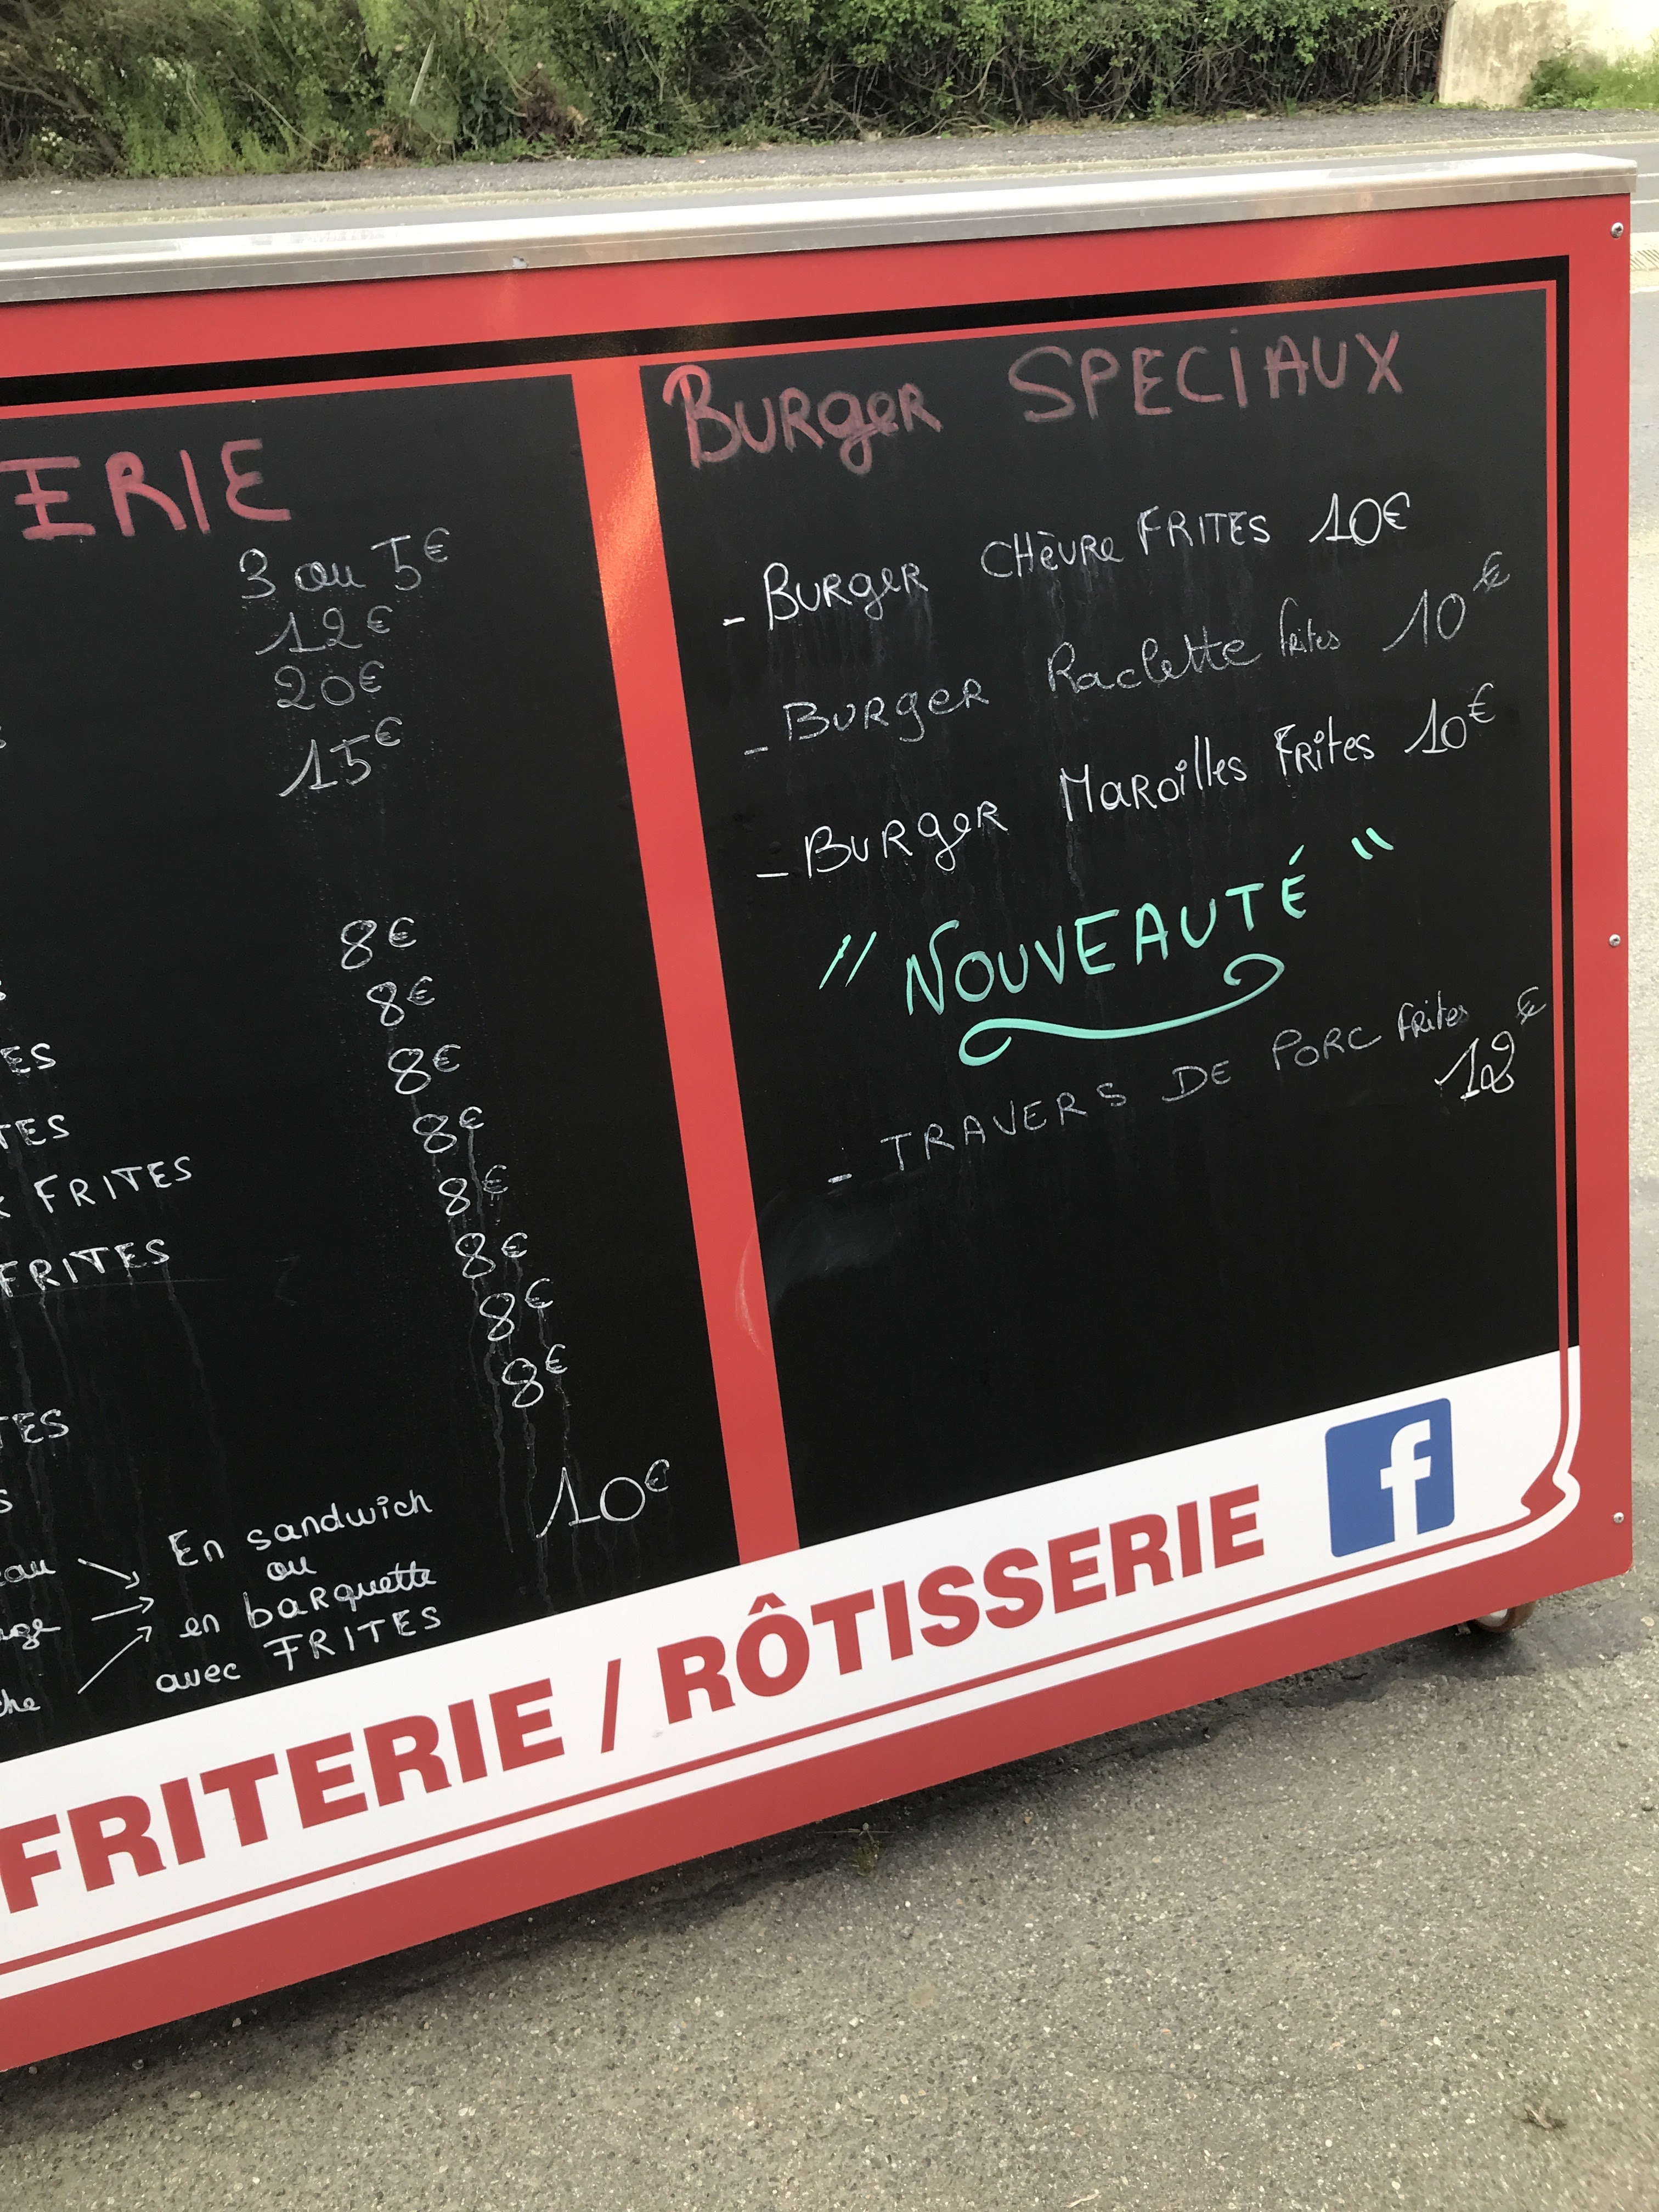 ERIE
3 ou 5€
12€
20€
15€
8€
8€
8€
8€
FRITES
8€
FRITES
8€
8€
8€
10€
En sandwich
ou
en barquette
avec FRITES
Burger SPECIAUX
- Burger CHèvre FRITES 10€
- Burger Raclette frites 10€
- Burger Maroilles Frites 10€
" NOUVEAUTÉ "
- TRAVERS DE PORC frites
12€
FRITERIE / RÔTISSERIE f